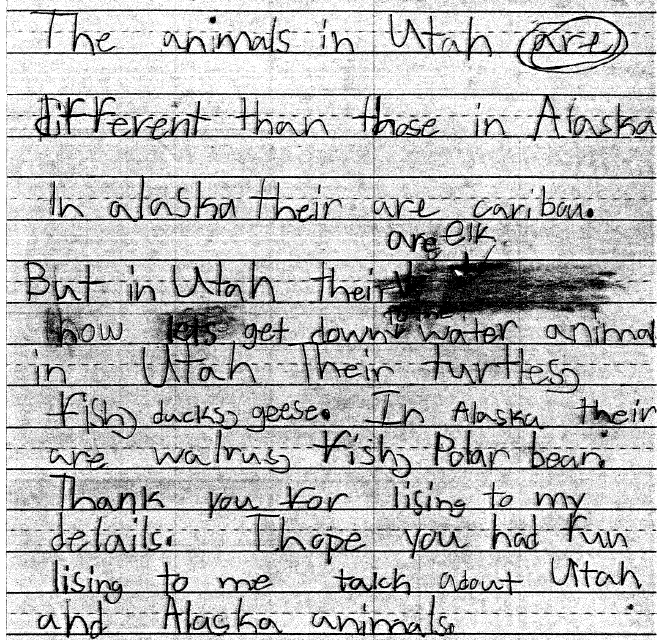 The animals in Utah are
different than those in Alaska
In alaska their are caribou.
are elk
But in Utah their
how lets get down to the water animal
in Utah Their turtles,
fish, ducks, geese. In Alaska their
are walrus, fish, Polar bear.
Thank you for lising to my
details. I hope you had fun
lising to me talck adout Utah
and Alaska animals.